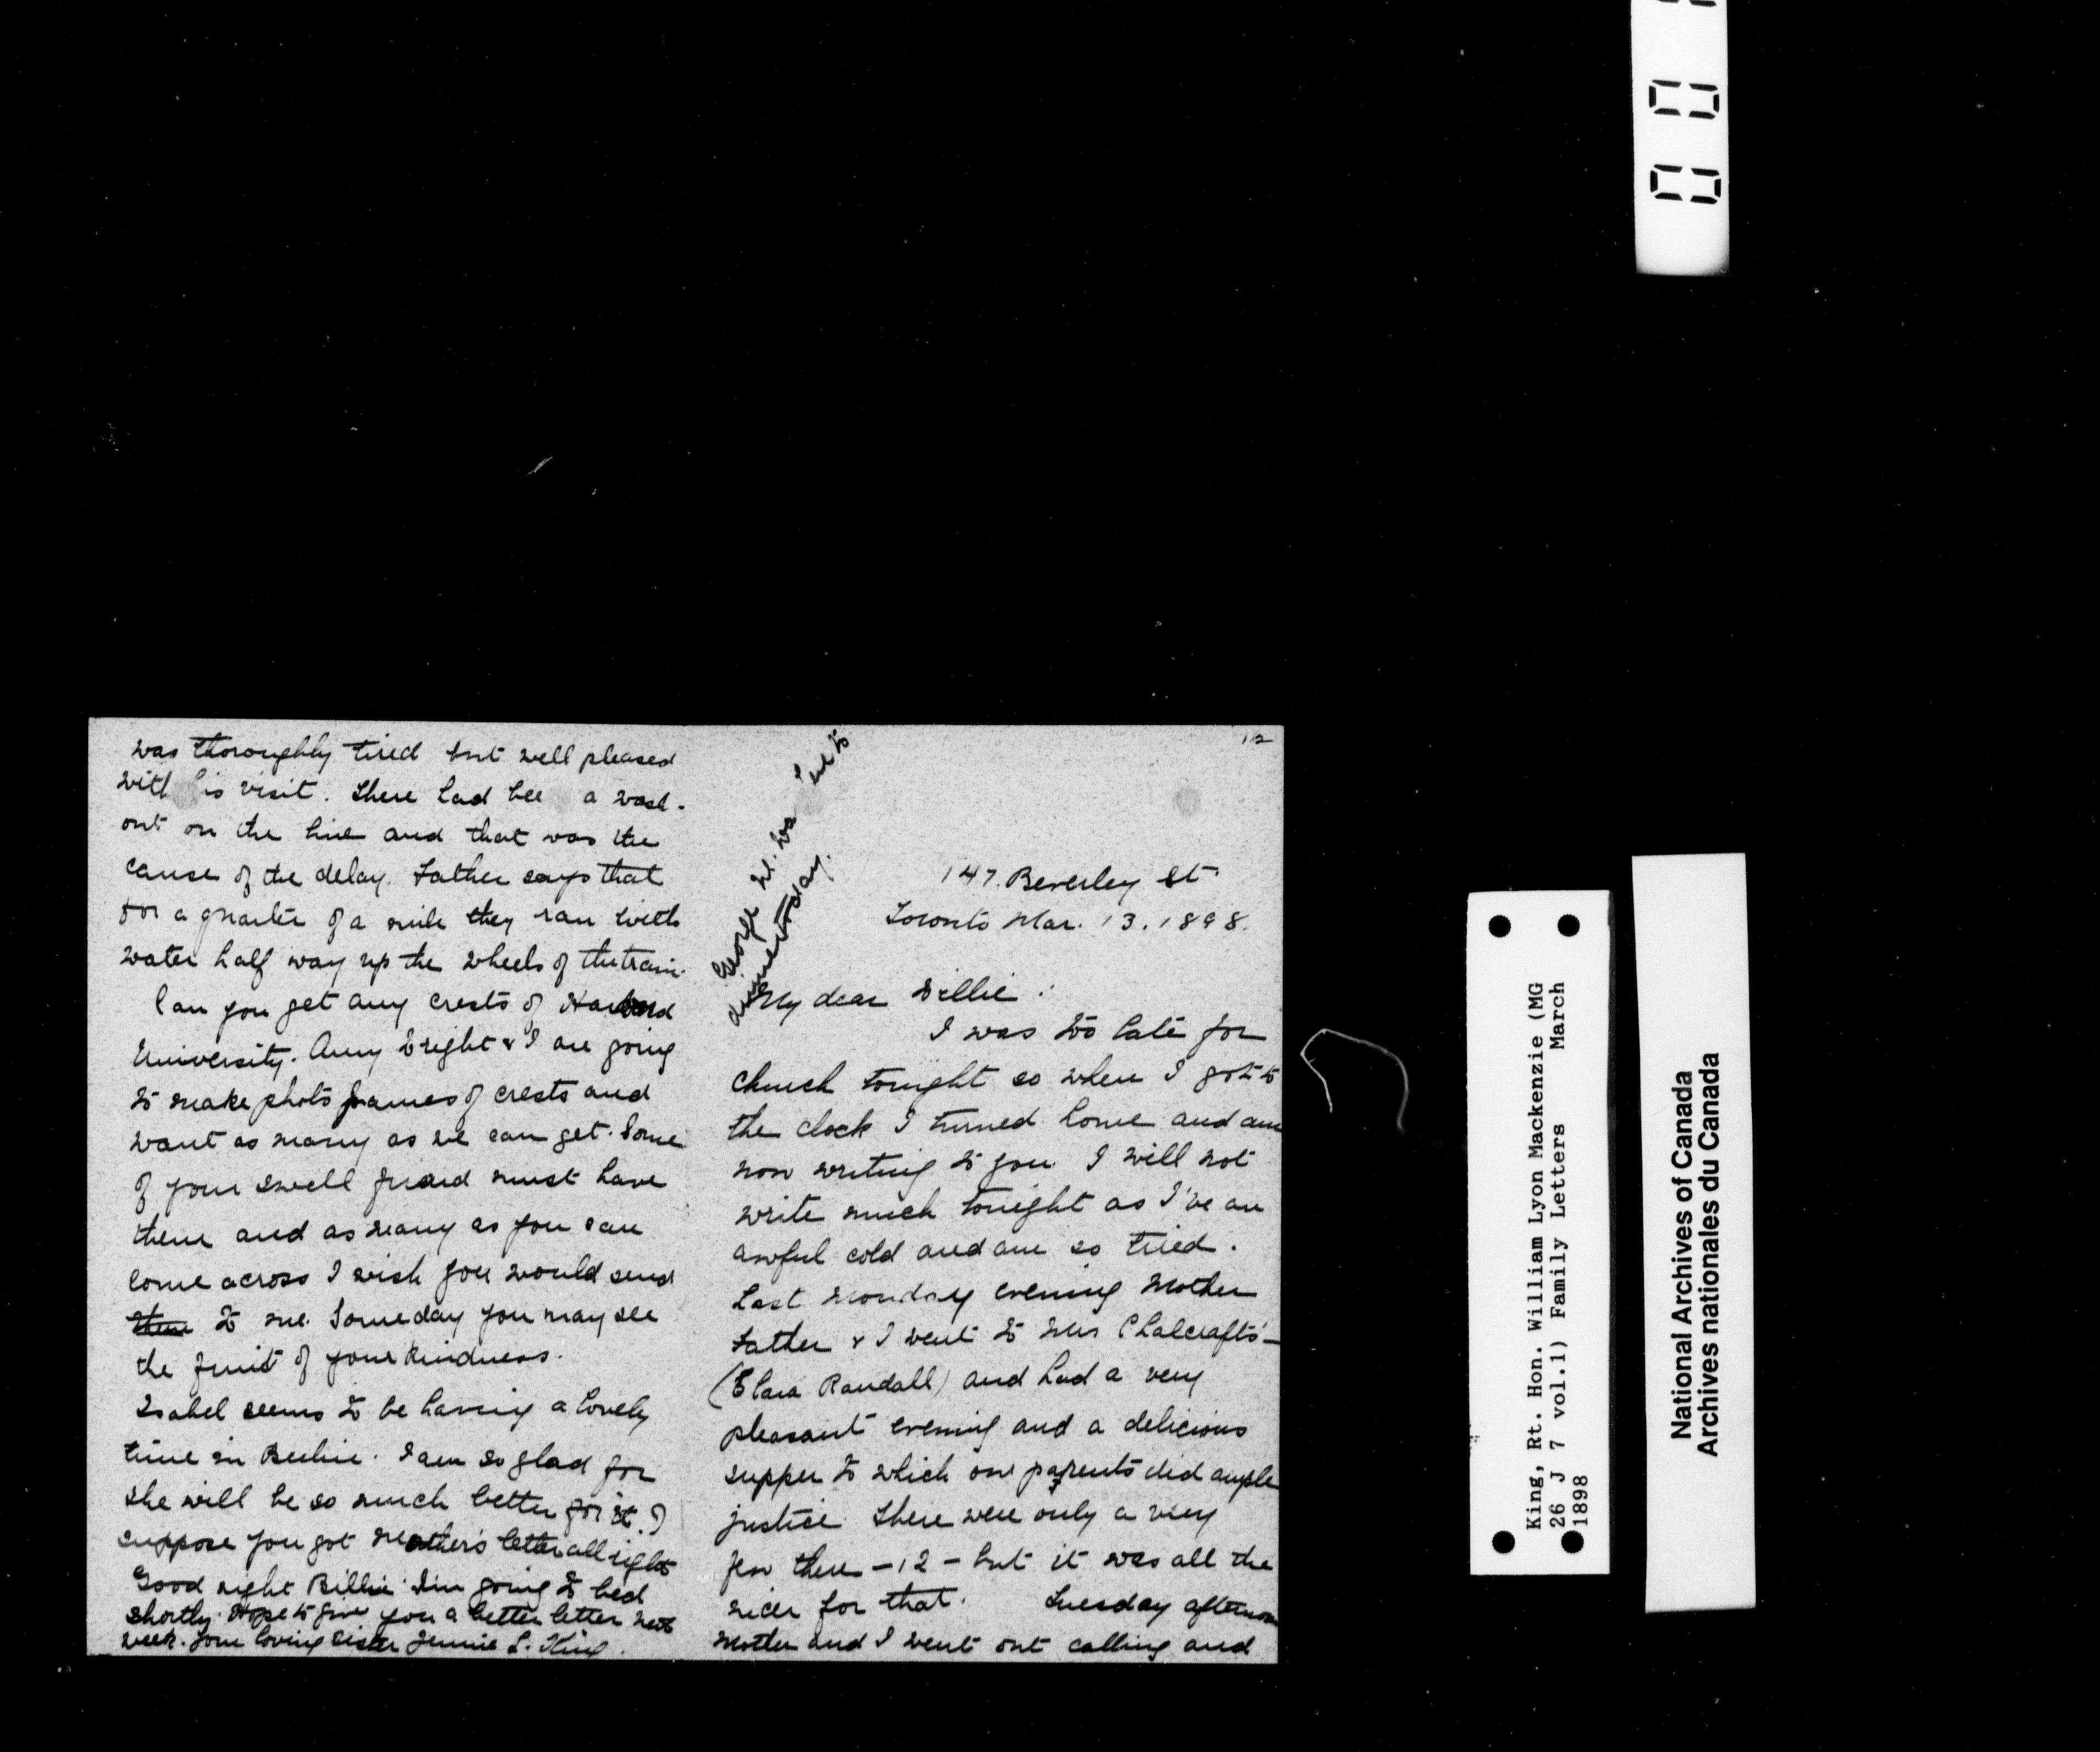 12
147. Beverley St.
Toronto Mar. 13. 1898.
My dear Willie:
I was too late for
church tonight so when I got to
the clock I turned home and am
now writing to you. I will not
write much tonight as I've an
awful cold and am so tired.
Last Monday evening Mother
Father & I went to Mrs Chalcrafts -
(Clara Randall) and had a very
pleasant evening and a delicious
supper to which our parents did ample
justice. There were only a very
few there - 12 - but it was all the
nicer for that. Tuesday afternoon
Mother and I went out calling and
George W. was in to
dinner today.
was thoroughly tired but well pleased
with his visit. There had bee a wash-
out on the line and that was the
cause of the delay. Father says that
for a quarter of a mile they ran with
water half way up the wheels of the train.
Can you get any crests of Harvard
University. Amy Wright & I are going
to make photo frames of crests and
want as many as we can get. Some
of your swell friend must have
them and as many as you can
come across I wish you would send
them to me. Someday you may see
the fruit of your kindness.
Isabel seems to be having a lovely
time in Berlin. I am so glad for
she will be so much better for it. I
suppose you got Mother's letter all right
Good night Billie I'm going to bed
shortly. Hope to give you a better letter next
week. Your loving sister Jennie L. King.
King, Rt. Hon. William Lyon Mackenzie (MG
26 J 7 vol.1) Family Letters March
1898
National Archives of Canada
Archives nationales du Canada